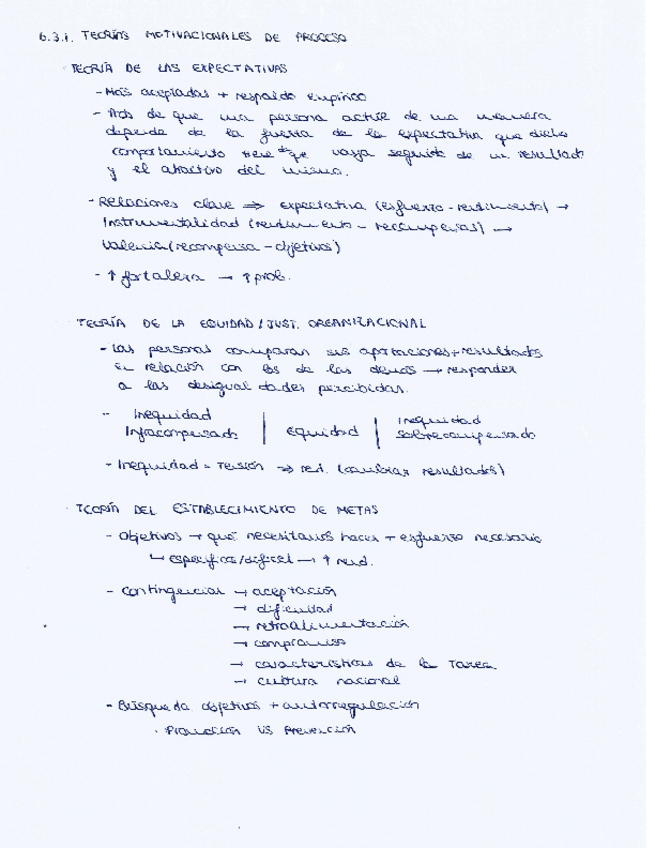 6.3.1. TEORÍAS MOTIVACIONALES DE PROCESO
· TEORÍA DE LAS EXPECTATIVAS
- Más aceptadas + respaldo empírico
- de que una persona actúe de una manera
depende de la fuerza de la expectativa que dicho
comportamiento tiene de que vaya seguido de un resultado
y el atractivo del mismo.
- Relaciones clave ⇒ expectativa (esfuerzo - rendimiento) →
Instrumentalidad (rendimiento - recompensas) →
Valencia (recompensa - objetivos)
- ↑ fortaleza → ↑ prob.
· TEORÍA DE LA EQUIDAD / JUST. ORGANIZACIONAL
- Las personas comparan sus aportaciones + resultados
en relación con los de los demás → responder
a las desigualdades percibidas.
- Inequidad Infracompensado | Equidad | Inequidad Sobrecompensado
- Inequidad = Tensión ⇒ red. (cambiar resultados)
· TEORÍA DEL ESTABLECIMIENTO DE METAS
- Objetivos → qué necesitamos hacer + esfuerzo necesario
↳ específico/difícil → ↑ rend.
- Contingencias → aceptación
→ dificultad
→ retroalimentación
→ compromiso
→ características de la Tarea
→ cultura nacional
- Búsqueda objetivos + autorregulación
· Promoción VS Prevención